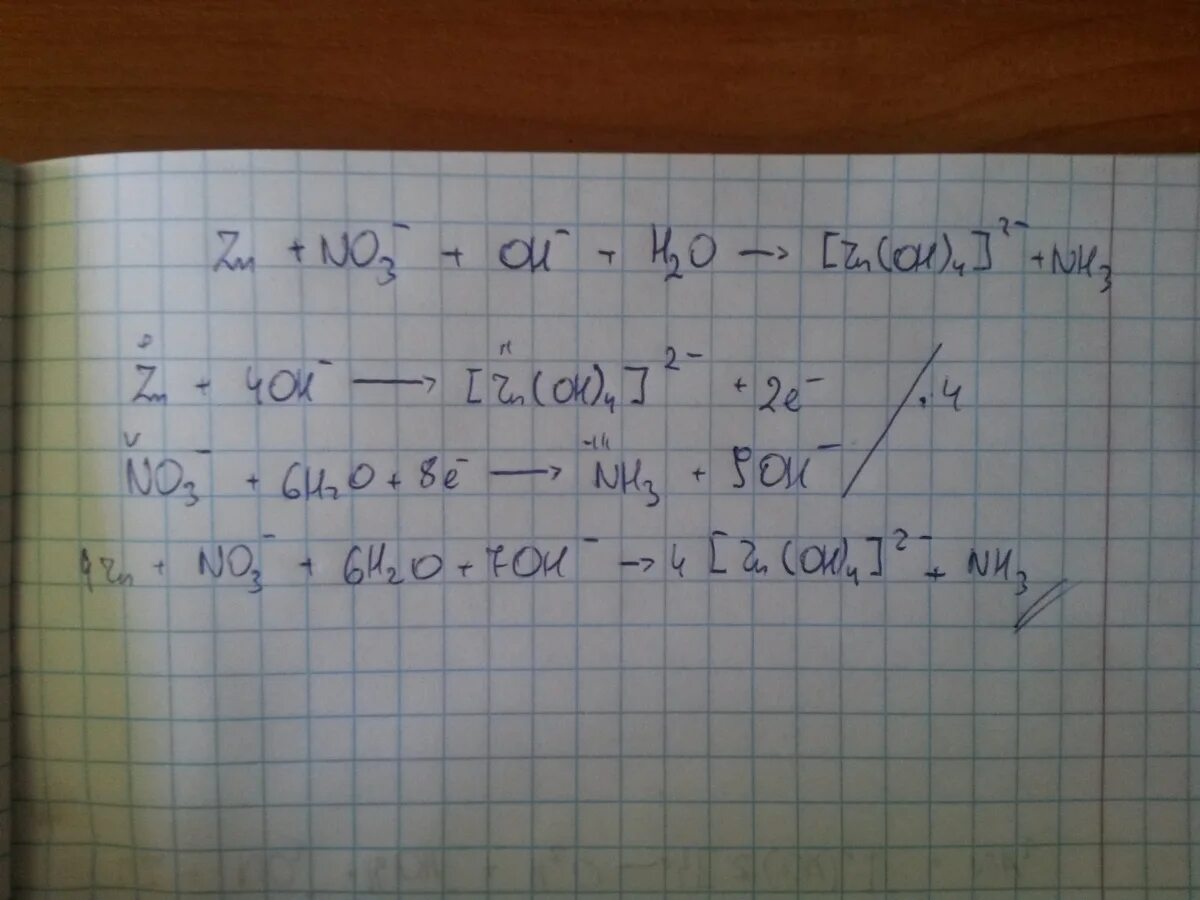 Zn + NO₃⁻ + OH⁻ + H₂O → [Zn(OH)₄]²⁻ + NH₃
0
Zn + 4OH⁻ → [Zn(OH)₄]²⁻ + 2e⁻ / · 4
II
V
NO₃⁻ + 6H₂O + 8e⁻ → NH₃ + 9OH⁻
-III
4Zn + NO₃⁻ + 6H₂O + 7OH⁻ → 4 [Zn(OH)₄]²⁻ + NH₃